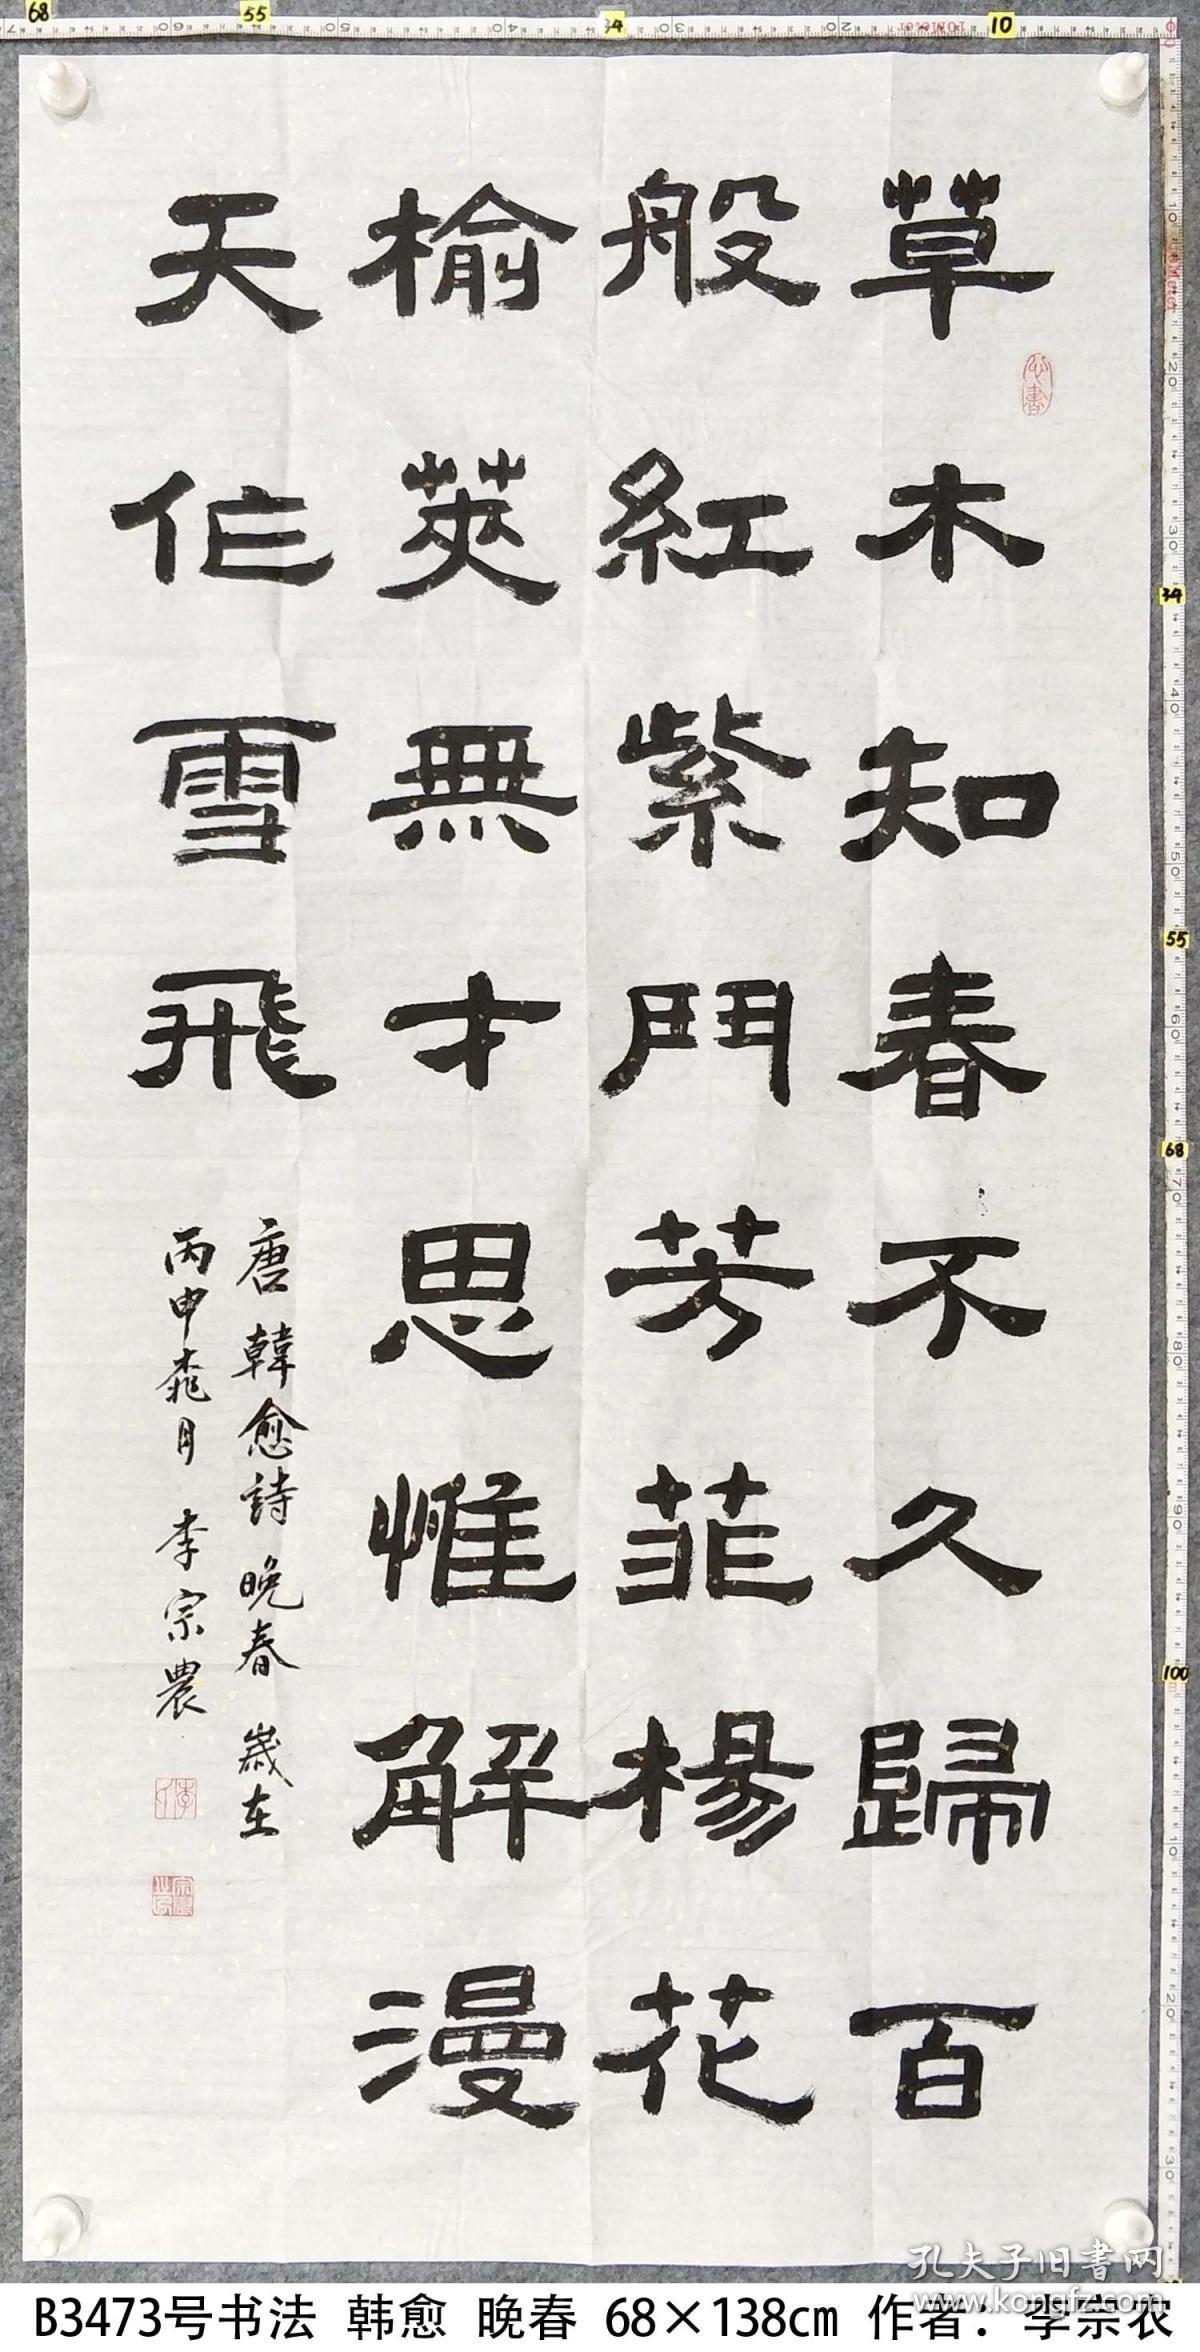 68 55 34 10
草木知春不久歸百
般紅紫鬥芳菲楊花
榆莢無才思惟解漫
天作雪飛
唐韓愈詩晚春 歲在
丙申桃月 李宗農
34
55
68
100
孔夫子旧书网
www.kongfz.com
B3473号书法 韩愈 晚春 68×138cm 作者：李宗农